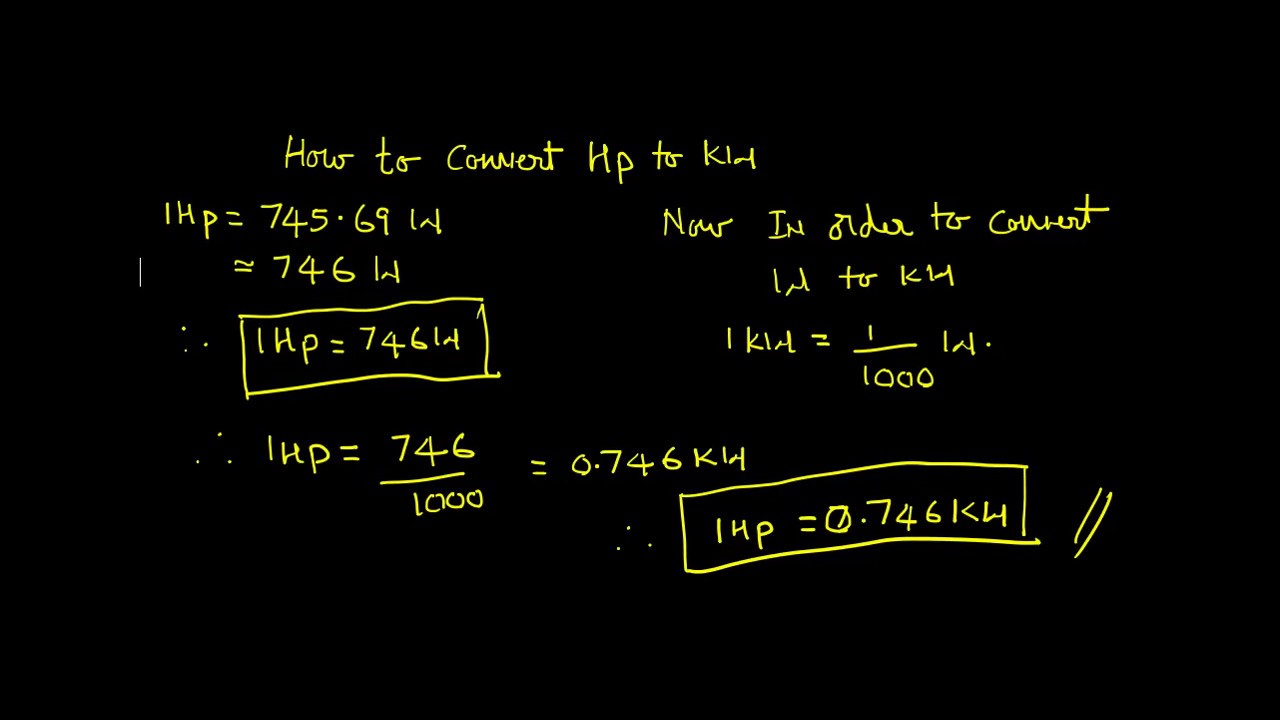 How to Convert Hp to KW
1Hp = 745.69 W
≈ 746 W
∴ 1Hp = 746W
Now In order to Convert
W to KW
1 KW = 1/1000 W.
∴ 1Hp = 746/1000 = 0.746 KW
∴ 1Hp = 0.746KW //